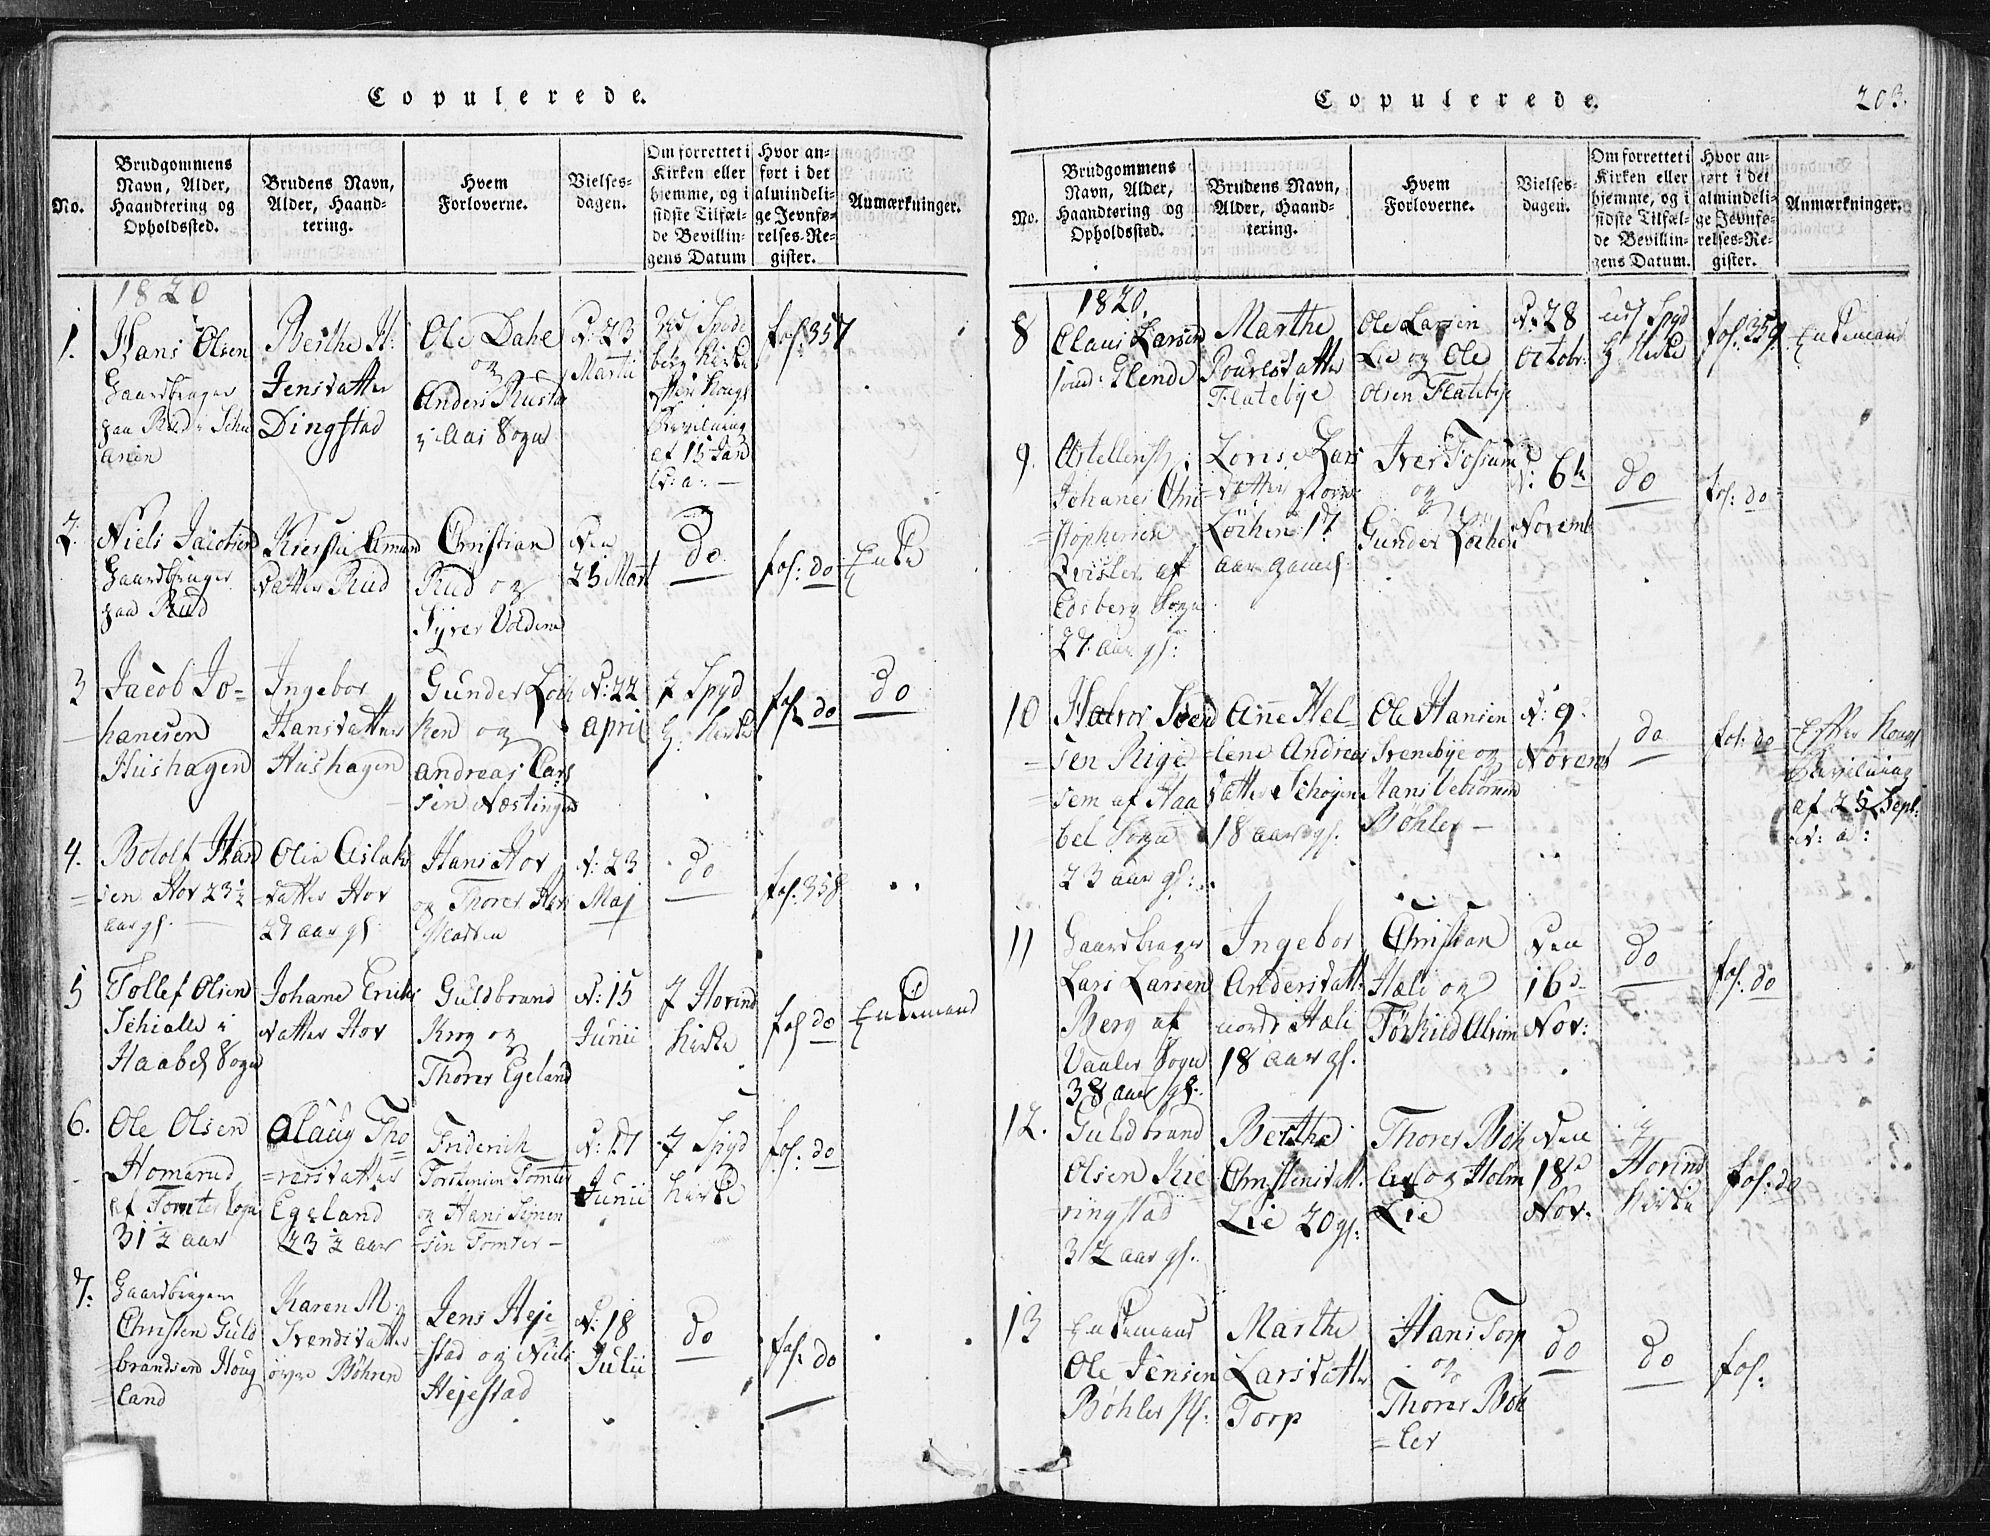 Copulerede.
No.
Brudgommens
Navn, Alder,
Haandtering og
Opholdssted.
Brudens Navn,
Alder, Haand-
tering.
Hvem
Forloverne.
Vielses-
dagen.
Om forrettet i
Kirken eller
hjemme, og i
sidste Tilfæl-
de Bevillin-
gens Datum
Hvor an-
ført i det
almindeli-
ge Jevnfø-
relses-Re-
gister.
Anmærkninger.
1820
1.
Hans Olsen
Gaardbruger
paa Rud i
Berthe H:
Jensdatter
Dingstad
Ole Dahl
og
Anders
i Aas Sogn
D: 23
Martii
Kirke
efter Kongl
Bevilning
af 15 Jan
fol: 357
2.
Niels Jacobsen
Gaardbruger
paa Rud
Kierstie Amund
datter Rud
Christian
Rud og
Syver Voldene
den
25 Mart
do
fol: do
Enke
3
Jacob Jo-
hansen
Hushagen
Ingebor
Hansdatter
Hushagen
Gunder Loch
ken og
Andreas Lars
sen Næstingen
d: 22
april
I Spyd
b: Kirke
fol do
do
4.
Botolf Han
sen Hov 23 1/2
aar gl.
Olia Aslak
datter Hov
27 aar gl
Hans Hov
og Thorer Hans
d: 23
Maj
do
fol: 358
5
Tollef Olsen
Schialle i
Haabøl Sogn
Johane Eriks
datter Hov
Guldbrand
Krog og
Thorer Egeland
d: 15
Junii
I Hovind
Kirke
fol do
Enkemand
6.
Ole Olsen
Homerud
af Tomter Sogn
31 1/2 aar
Olaug Tho
=rersdatter
Egeland
23 1/2 aar
Friderich
Torstensen Tomter
og Hans Simen
sen Tomter
d: 17
Junii
I Spyd
Kirke
fol: do
7:
Gaardbruger
Christen Guld
brandsen Houg
=land
Karen M.
Svendsdatter
øvre Böhren
Jens Heje
=stad og Niels
Hejestad
d: 18
Julii
do
fol: do
Copulerede.
203.
No.
Brudgommens
Navn, Alder,
Haandtering og
Opholdssted.
Brudens Navn,
Alder, Haand-
tering.
Hvem
Forloverne.
Vielses-
dagen.
Om forrettet i
Kirken eller
hjemme, og i
sidste Tilfæl-
de Bevillin-
gens Datum.
Hvor an-
ført i det
almindeli-
ge Jevnfø-
relses-Re-
gister.
Anmærkninger.
1820.
8
Claus Larsen
Glende
Marthe
Pouelsdatter
Flatebye
Ole Larsen
Lie og Ole
Olsen Flatebye
d: 28
Octobr:
Spyd
b Kirke
fol: 359
Enkemand
9.
Johanes Chri
=stophersen
Qvisler af
Edsberg Sogn
27 aar gl:
Lovise Lars
datter
Löchen 17
aar gamel
Iver Fossum
og
Gunder Löchen
d: 6te
Novemb
do
fol: do
10
Halvor Svend
sen Rige
sem af Haa
bel Sogn
23 aar gl:
Anne Hel
lene Andreas
datter Schojen
18 aar gl.
Ole Hansen
Svenebye og
Hans
Böhler
d: 9
Novemb
do
fol: do
Efter Kongl
Bevilning
af 25 Sept:
d: a:
11
Gaardbruger
Lars Larsen
Berg af
Vaaler Sogn
38 aar gl.
Ingebor
Andersdatt
nordr Hæli
18 aar gl.
Christian
Hæli og
Törkild Alrim
den
16d
Nov:
do
fol. do
12.
Guldbrand
Olsen Kie
ringstad
32 aar gl.
Berthe
Christensdatt.
Lie 20 gl.
Thorer Böh
ler og Holm
Lie
den
18d
Nov:
i
Hovind
Kirke
fol: do
13
Enkemand
Ole Jensen
Böhler
Marthe
Larsdatter
Torp
Hans Torp
og
Thorer Böh
=ler
do
do
fol: